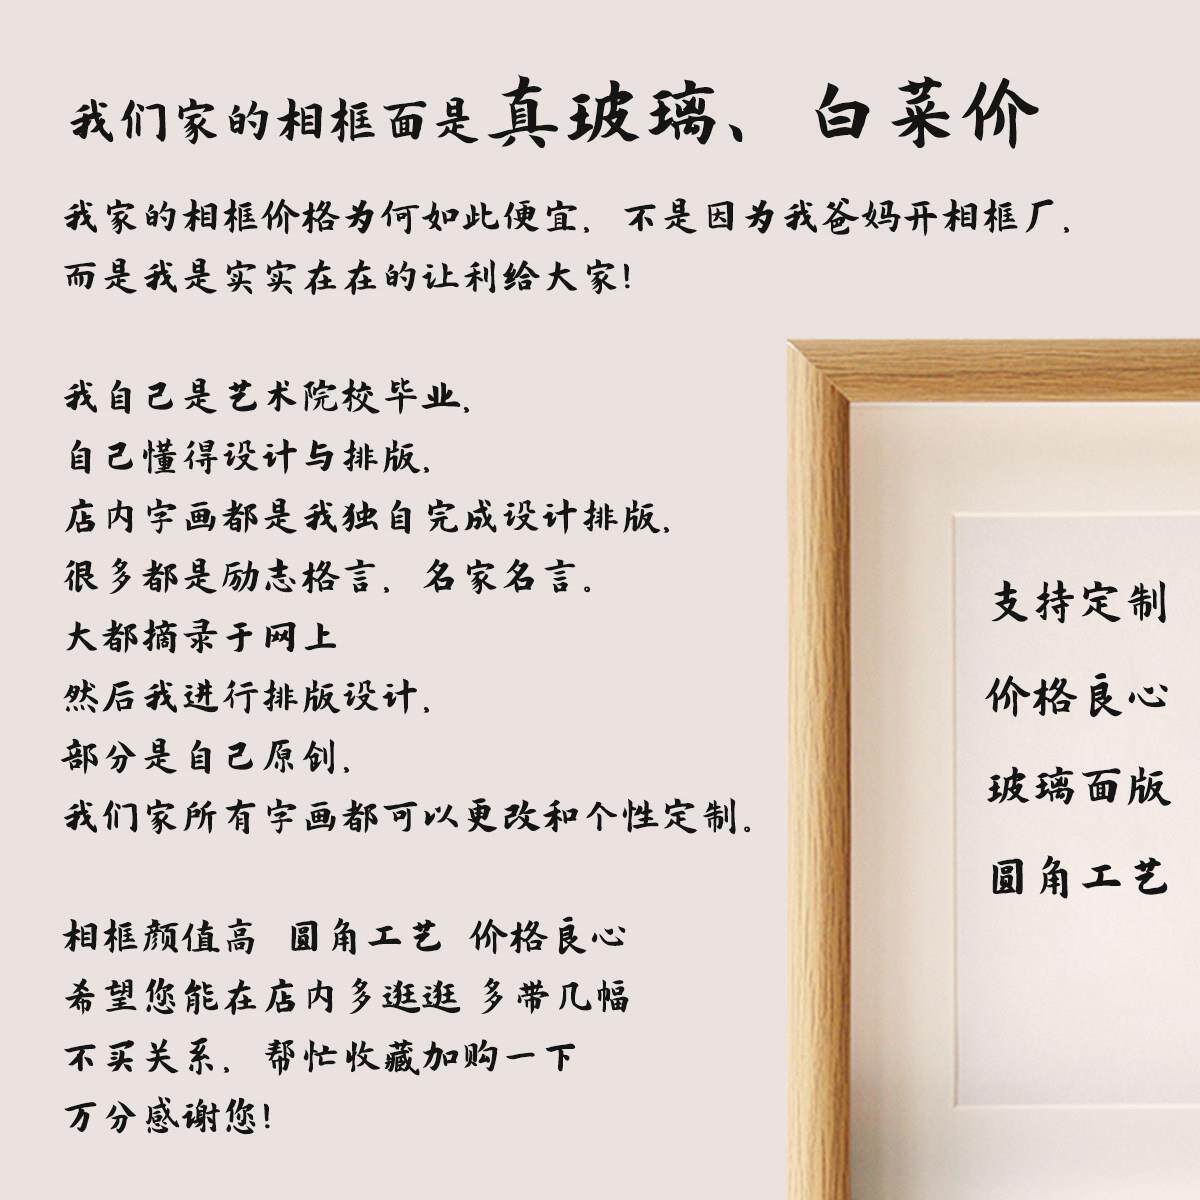 我们家的相框面是真玻璃、白菜价
我家的相框价格为何如此便宜，不是因为我爸妈开相框厂，
而是我是实实在在的让利给大家！
我自己是艺术院校毕业，
自己懂得设计与排版，
店内字画都是我独自完成设计排版，
很多都是励志格言，名家名言。
大都摘录于网上
然后我进行排版设计，
部分是自己原创，
我们家所有字画都可以更改和个性定制。
相框颜值高 圆角工艺 价格良心
希望您能在店内多逛逛 多带几幅
不买关系，帮忙收藏加购一下
万分感谢您！
支持定制
价格良心
玻璃面版
圆角工艺